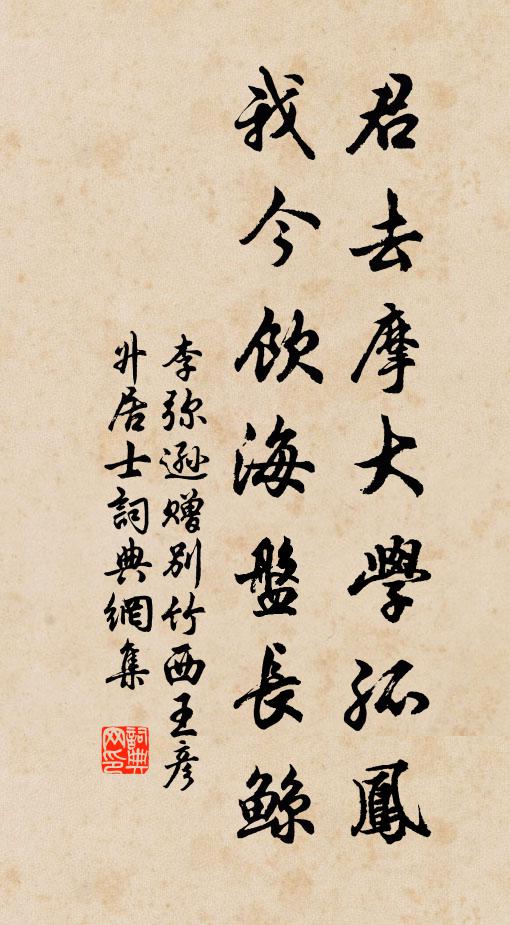 君去摩大學孤鳳
我今飲海盤長鯨
李弥遜赠别竹西王彦
廾居士詞典網集
詞典
网印